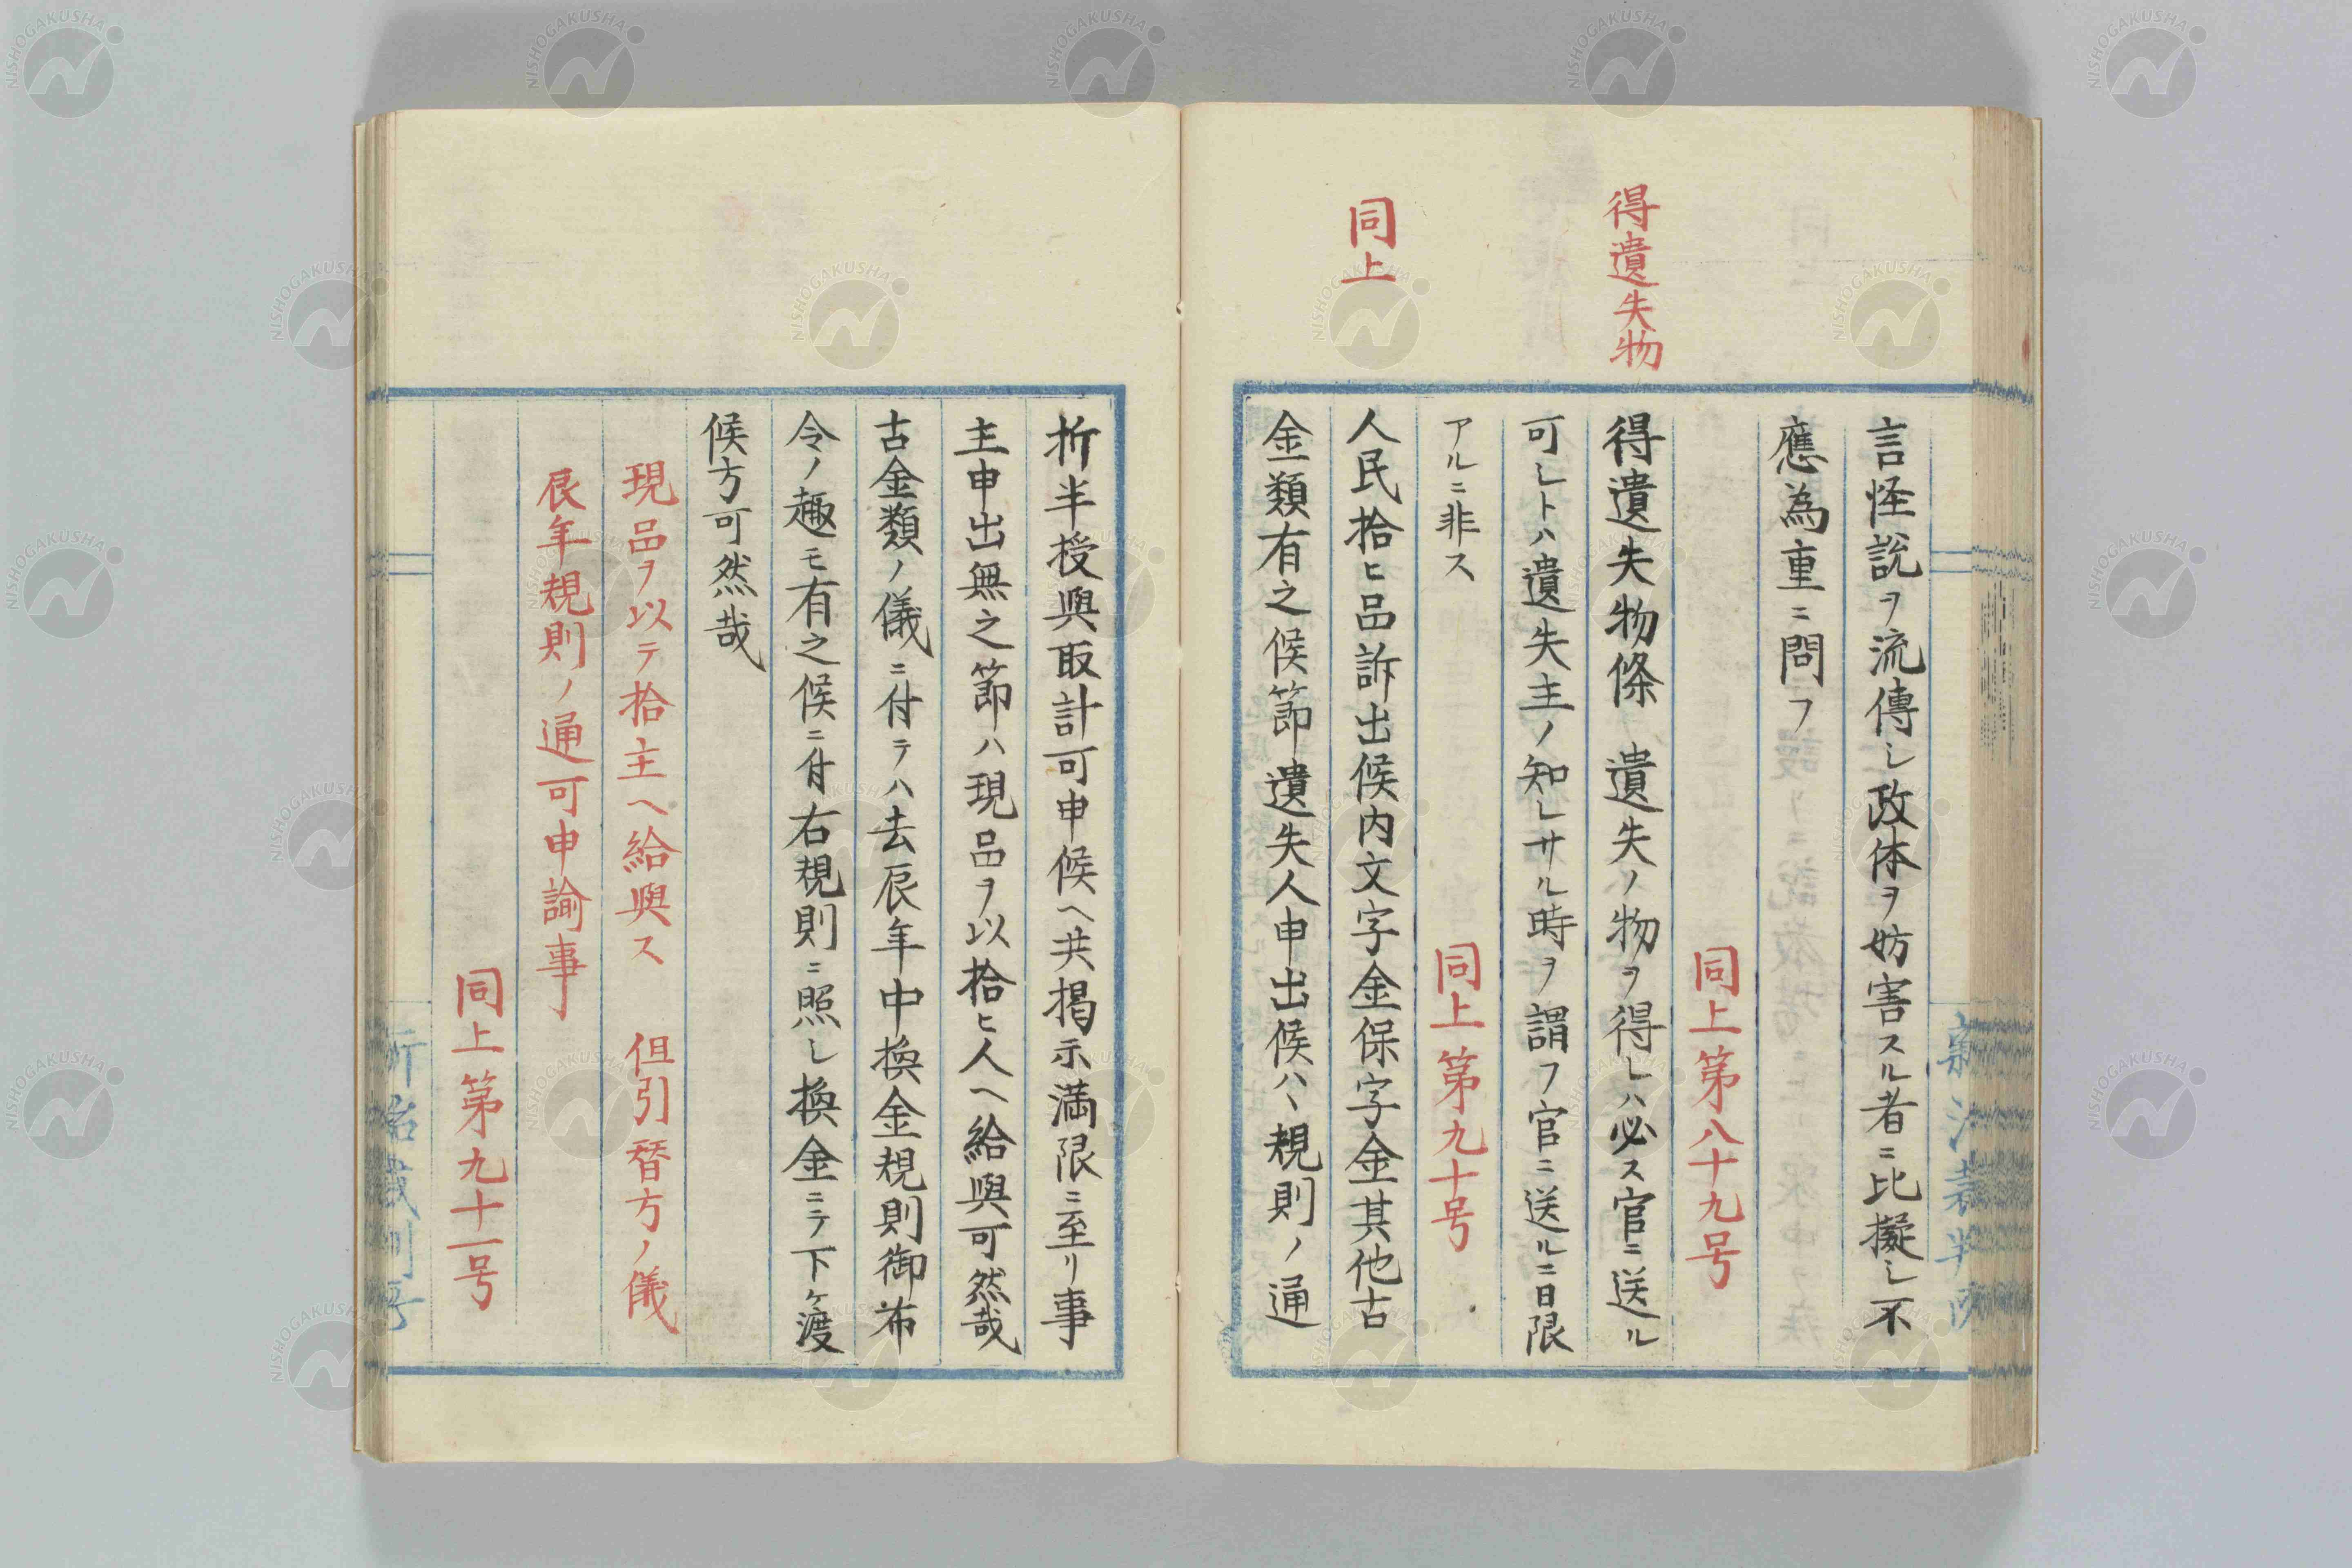 言怪説ヲ流傳シ政体ヲ妨害スル者ニ比擬シ不
應為重ニ問フ
同上第八十九号
得遺失物
得遺失物條 遺失ノ物ヲ得レハ必ス官ニ送ル
可シトハ遺失主ノ知レサル時ヲ謂フ官ニ送ルニ日限
アルニ非ス
同上第九十号
同上
人民拾ヒ品訴出候内文字金保字金其他古
金類有之候節遺失人申出候ハヽ規則ノ通
折半授與取計可申候ヘ共掲示満限ニ至リ事
主申出無之節ハ現品ヲ以拾ヒ人ヘ給與可然哉
古金類ノ儀ニ付テハ去辰年中換金規則御布
令ノ趣モ有之候ニ付右規則ニ照シ換金ニテ下ケ渡
候方可然哉
現品ヲ以テ拾主ヘ給與ス 但引替方ノ儀
辰年規則ノ通可申諭事
同上第九十一号
NISHOGAKUSHA